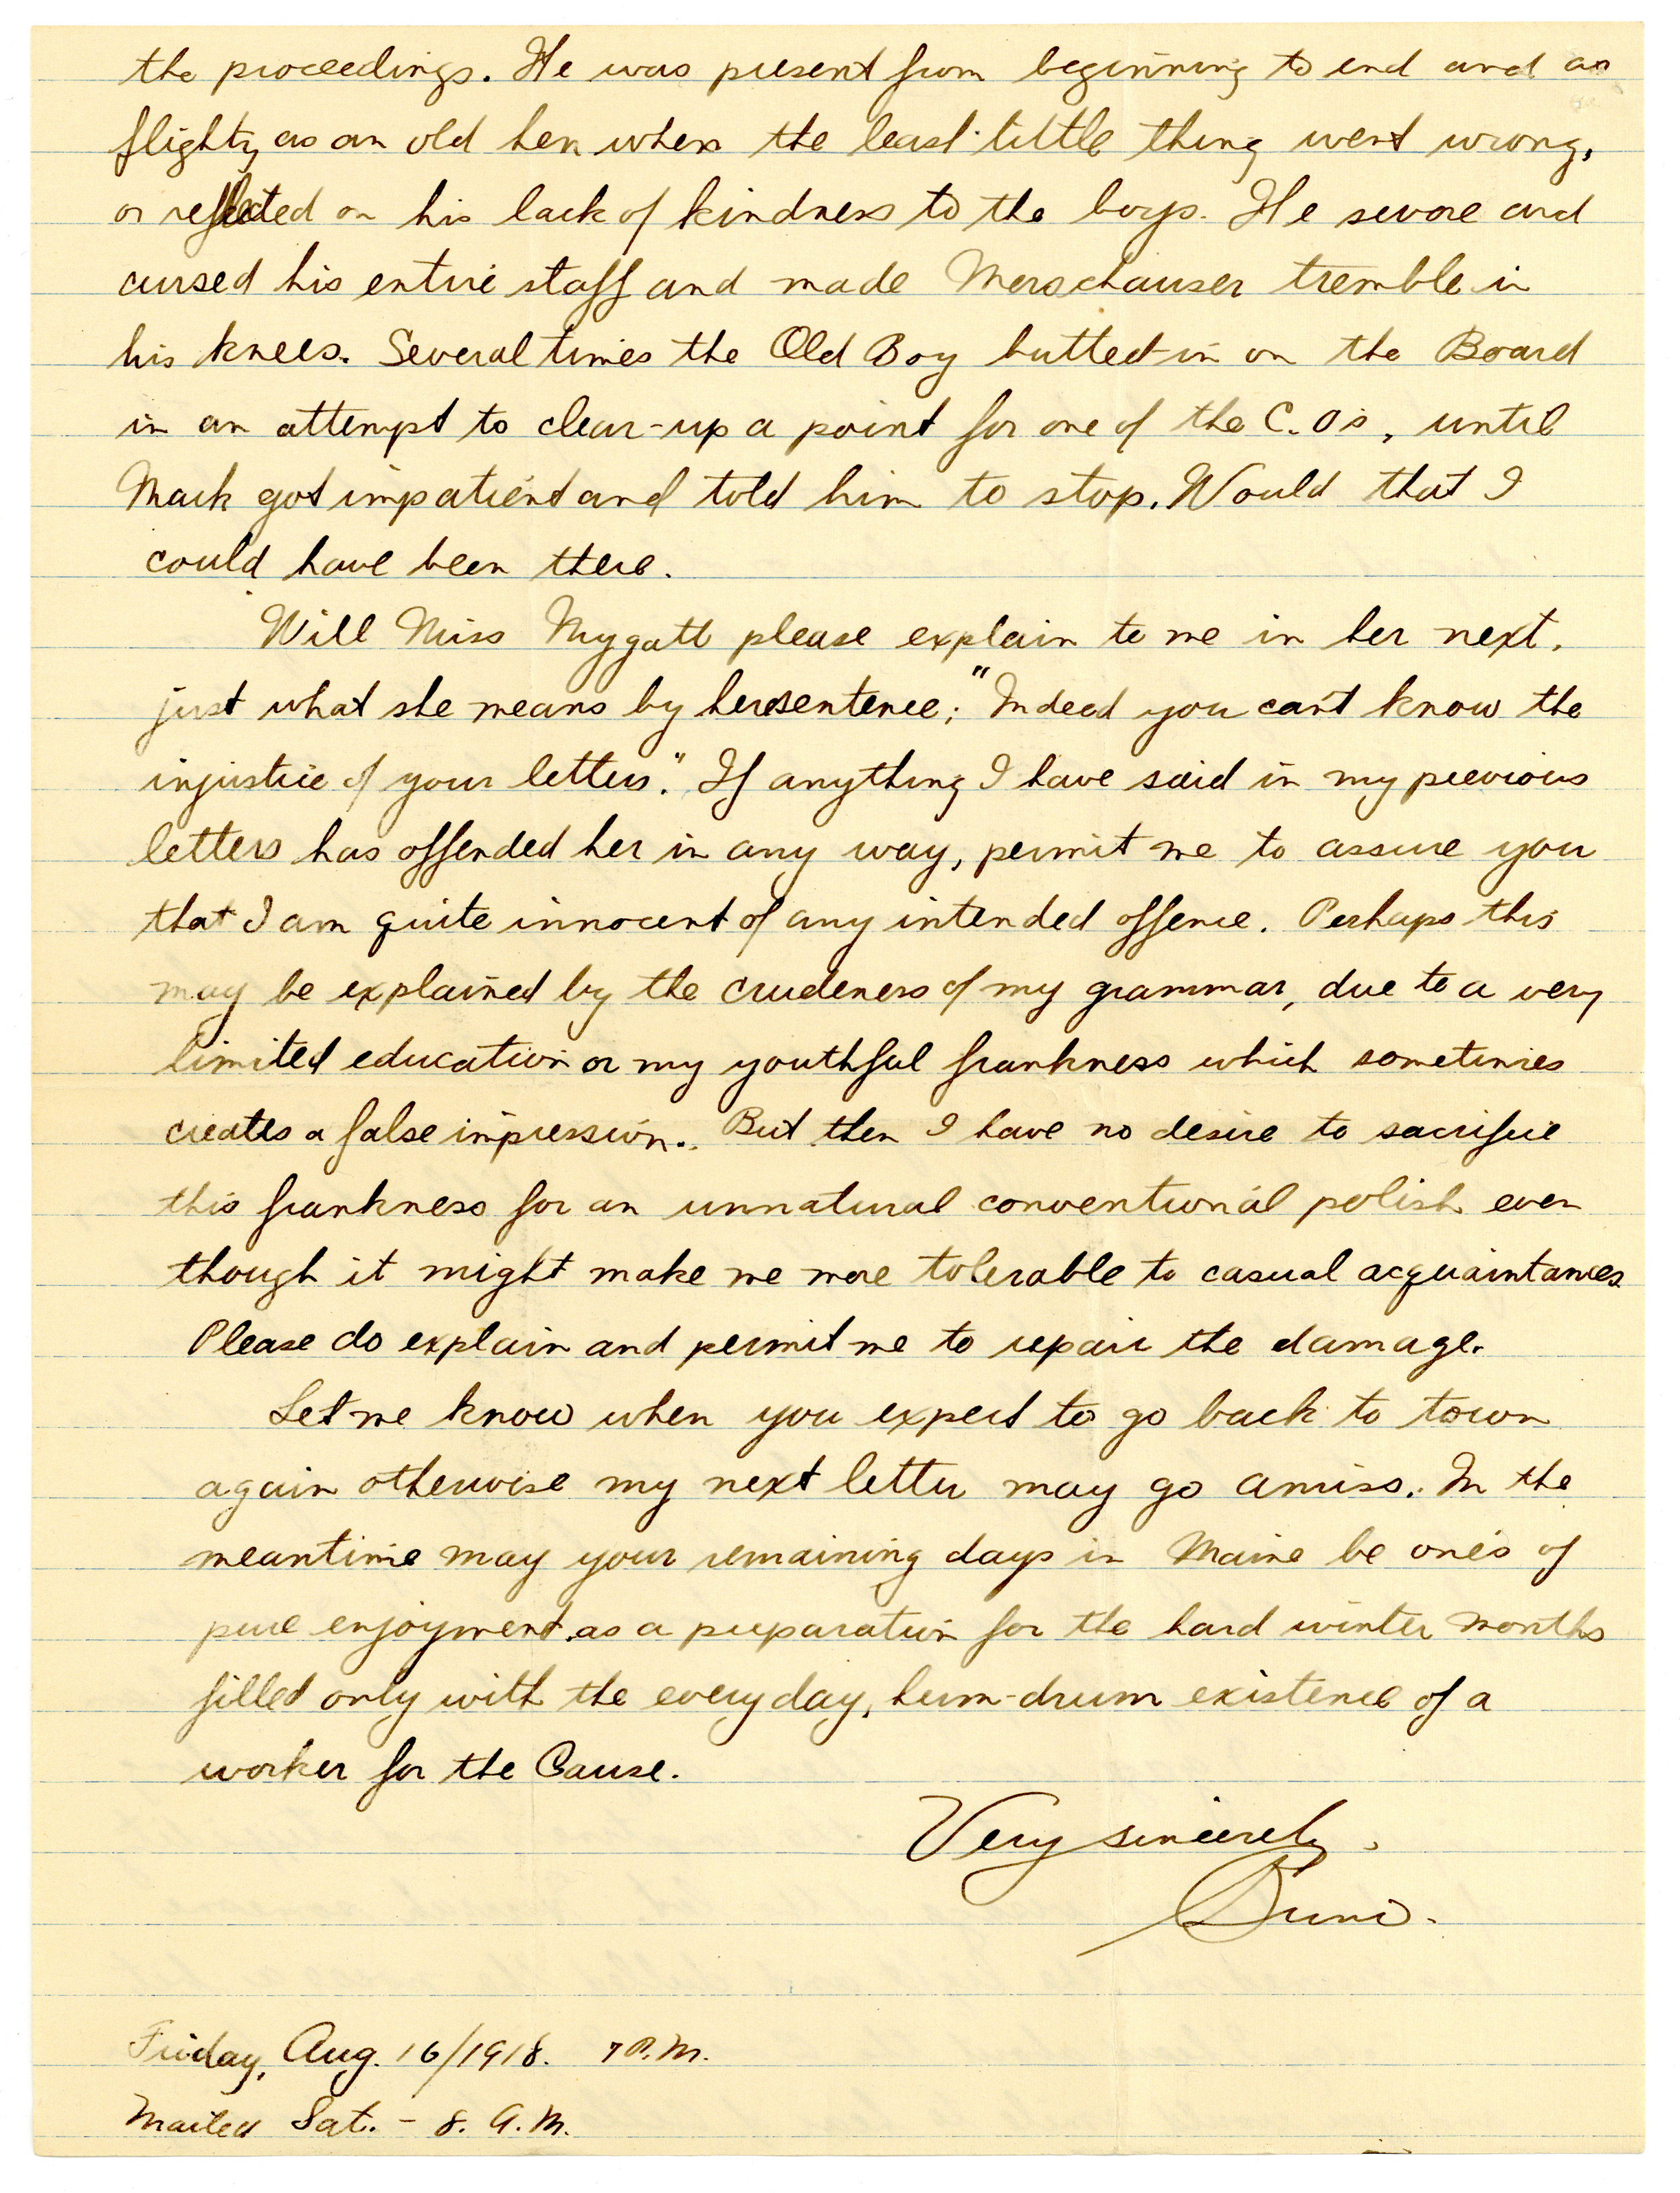 the proceedings. He was present from beginning to end and as
flighty as an old hen when the least little thing went wrong,
or reflected on his lack of kindness to the boys. He swore and
cursed his entire staff and made Merschauser tremble in
his knees. Several times the Old Boy butted-in on the Board
in an attempt to clear-up a point for one of the C.O's, until
Mack got impatient and told him to stop. Would that I
could have been there.
Will Miss Mygatt please explain to me in her next,
just what she means by her sentence; "Indeed you can't know the
injustice of your letters." If anything I have said in my previous
letters has offended her in any way, permit me to assure you
that I am quite innocent of any intended offense. Perhaps this
may be explained by the crudeness of my grammar, due to a very
limited education or my youthful frankness which sometimes
creates a false impression. But then I have no desire to sacrifice
this frankness for an unnatural conventional polish even
though it might make me more tolerable to casual acquaintances.
Please do explain and permit me to repair the damage.
Let me know when you expect to go back to town
again otherwise my next letter may go amiss. In the
meantime may your remaining days in Maine be one's of
pure enjoyment as a preparation for the hard winter months
filled only with the everyday, hum-drum existence of a
worker for the Cause.
Very sincerely,
Friday, Aug. 16/1918. 7 P.M.
Mailed Sat. - 8. A.M.